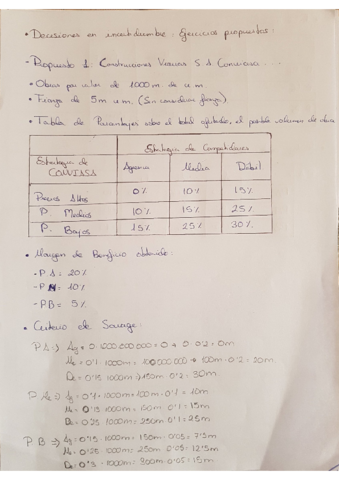 • Decisiones en incertidumbre. Ejercicios propuestos:
- Propuesto 1: Construcciones S.A
• Obras por valor de 1000 m de u.m
• 5m u.m. (Sin considerar
• Tabla de Porcentajes sobre el total el posible volumen de obra
Estrategia de Competidores
Estrategia de Agresiva Media Débil
Precios Altos 0% 10% 15%
P. Medios 10% 15% 25%
P. Bajos 15% 25% 30%
• Margen de Beneficio obtenido:
- P A = 20%
- P M = 10%
- P B = 5%
• Criterio de Savage:
P A => Ag = 0 · 1000 000 000 = 0 → 0 · 0'2 = 0m
Me = 0'1 · 1000m = 100 000 000 → 100m · 0'2 = 20m.
De = 0'15 · 1000m => 150m · 0'2 = 30m.
P. Me => Ag = 0'1 · 1000m = 100m · 0'1 = 10m
Me = 0'15 · 1000m = 150m · 0'1 = 15m
De = 0'25 · 1000m = 250m · 0'1 = 25m.
P. B => Ag = 0'15 · 1000m = 150m · 0'05 = 7'5m
Me = 0'25 · 1000m = 250m · 0'05 = 12'5m
De = 0'3 · 1000m = 300m · 0'05 = 15m